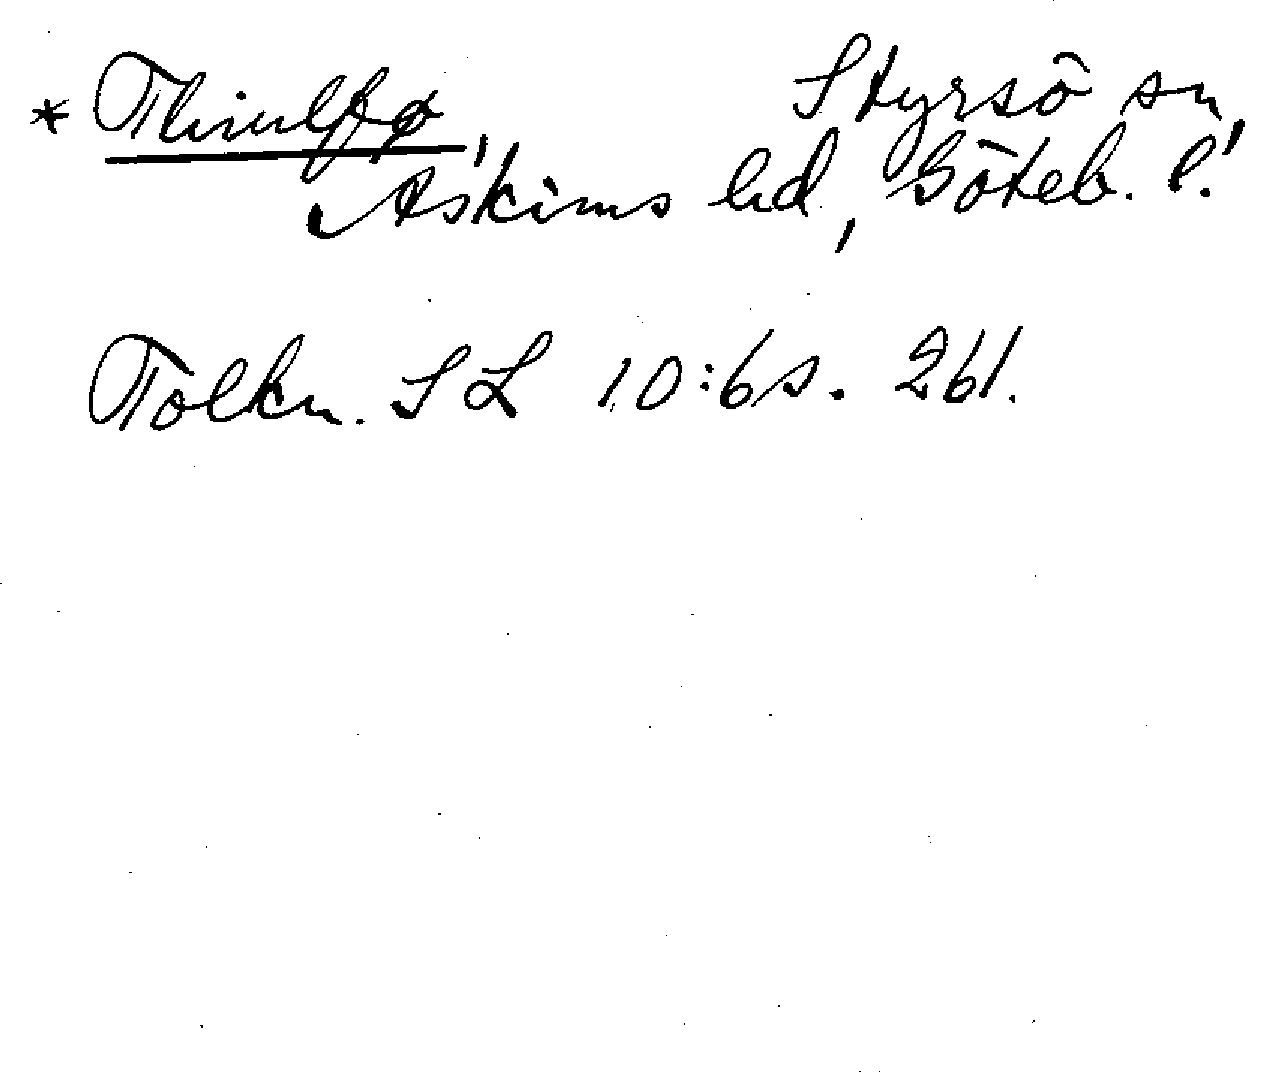 * Thiulfsø Styrsö sn,
Askims hd, Göteb. l.
Tolkn. SL 10:6 s. 261.